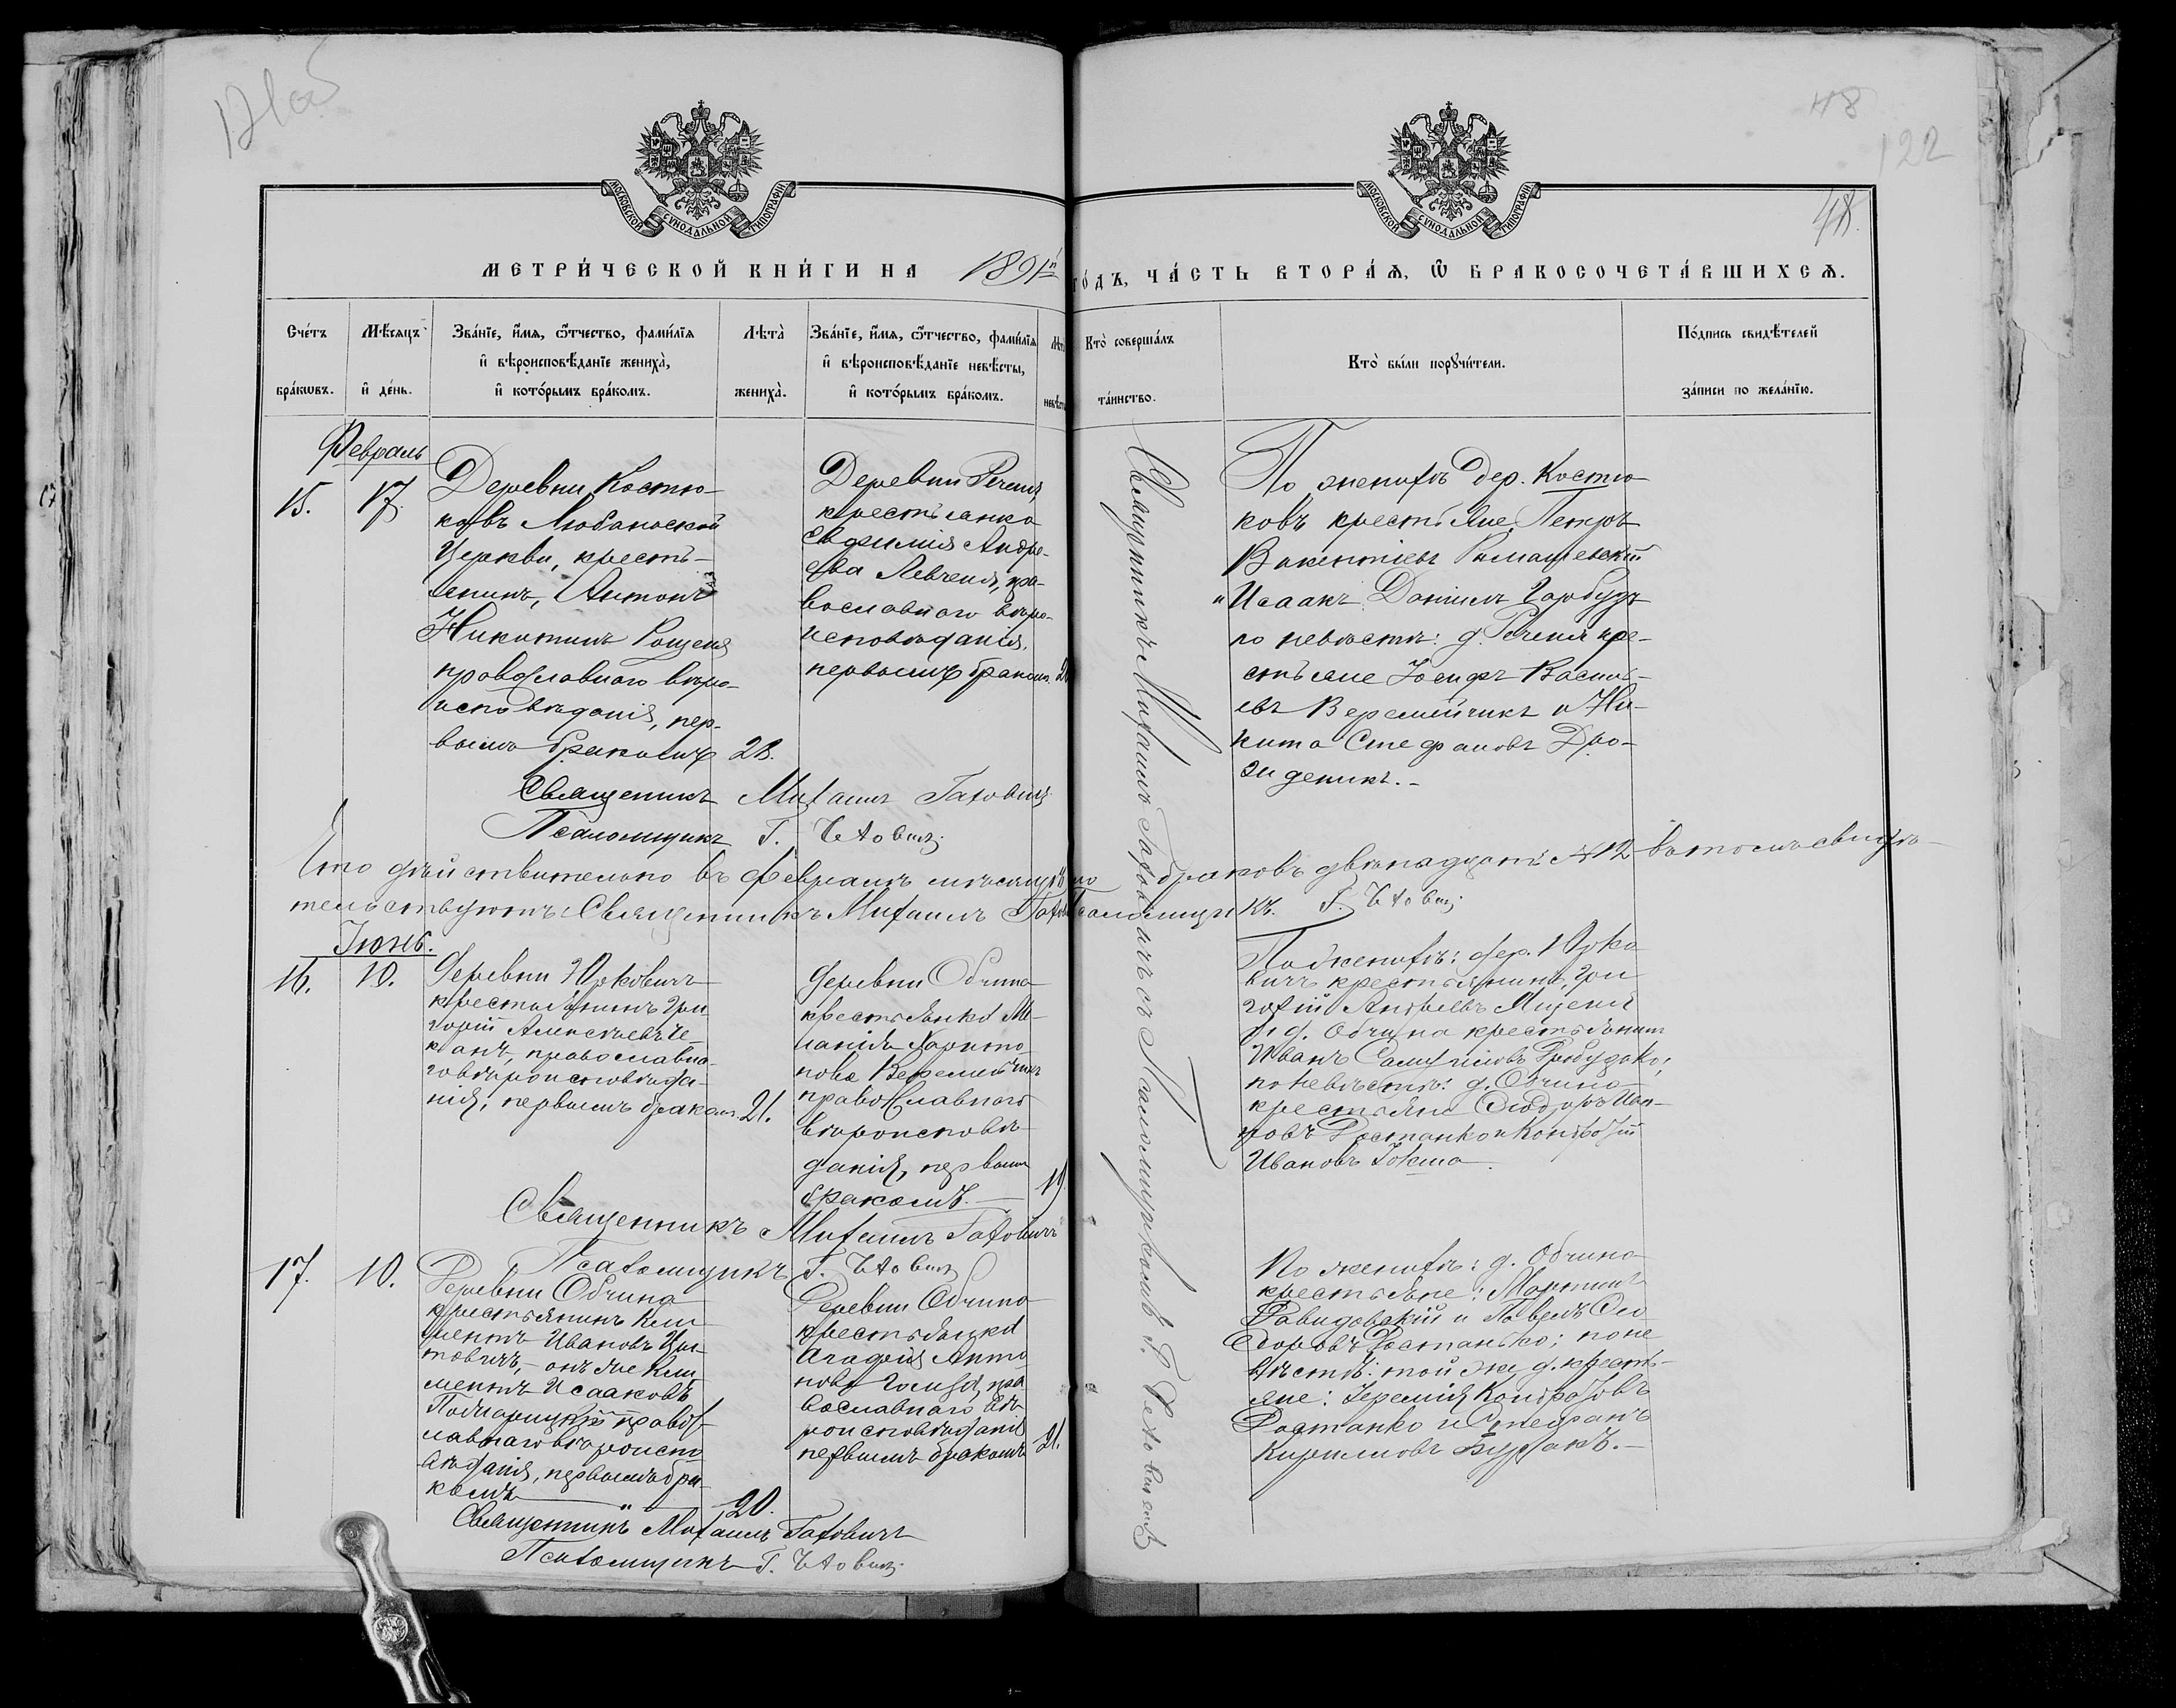 48
122
48
МОСКОВСКОЙ СѴНОДАЛЬНОЙ ТИПОГРАФІИ
МОСКОВСКОЙ СѴНОДАЛЬНОЙ ТИПОГРАФІИ
МЕТРИ́ЧЕСКОЙ КНИ́ГИ НА 1891й
ГО́ДЪ, ЧА́СТЬ ВТОРА́Ѧ, Ѿ БРАКОСОЧЕТА́ВШИХСѦ.
Сче́тъ
бра́кωвъ.
Мѣ́сѧцъ
и҆ де́нь.
Зва́нїе, и҆́мѧ, ѻ҆́тчество, фами́лїѧ
и҆ вѣроисповѣ́данїе жениха̀,
и҆ кото́рымъ бра́комъ.
Лѣ́та
жениха̀.
Зва́нїе, и҆́мѧ, ѻ҆́тчество, фами́лїѧ
и҆ вѣроисповѣ́данїе невѣ́сты,
и҆ кото́рымъ бра́комъ.
Лѣта
невѣсты
Кто̀ соверша́лъ
та́инство.
Кто̀ бы́ли порꙋчи́тели.
По́дпись свидѣ́телей
за́писи по жела́нїю.
Февраль
15.
17.
Деревни Костю-
ковъ Любаньской
Церкви, кресть-
янинъ, Антонъ
Никитинъ Рощеня
православнаго вѣро-
исповѣданія, пер-
вымъ бракомъ
23.
Деревни Реченя
крестьянка
Евфимія Андре-
ева Левченя, пра-
вославнаго вѣро-
исповѣданія,
первымъ бракомъ
Священникъ Михаилъ Гахович сь Псаломщикомъ
По женихѣ дер. Костю-
ковъ крестьяне Петръ
Викентіевъ Ромашевскій
и Исаакъ Даніилъ Горбудъ
по невѣстѣ: д. Реченя кре-
стьяне Іосифъ Василь-
евъ Веремейчикъ и Ни-
кита Стефановъ Дро-
зденикъ.-
Священникъ Михаилъ Гаховичъ
Псаломщикъ Г.
Что дѣйствительно въ Февралѣ мѣсяцѣ браковъ двѣнадцать №12 въ томъ свидѣ-
тельствуютъ Священникъ Михаилъ Псаломщикъ. Г.
Іюнь.
16.
10.
Деревни Юрковичъ
крестьянинъ Гри-
горій Алексѣевъ Че-
канъ, православна-
го вѣроисповѣда-
нія, первымъ бракомъ
21.
Деревни Обчина
крестьянка Ме-
ланія Харито-
нова Веремейчикъ
православнаго
вѣроисповѣ-
данія, первымъ
бракомъ.
19.
По женихѣ: дер. Юрко-
вичъ крестьянинъ Гри-
горій Андреевъ Мицкеня
и д. Обчина крестьянинъ
Иванъ
по невѣстѣ: д. Обчина
крестьяне Ѳеодоръ Ива-
новъ Достанко и Кондратій
Ивановъ
Священникъ Михаилъ Гаховичъ
Псаломщикъ Г.
17.
10.
Деревни Обчина
крестьянинъ Кли-
ментъ Ивановъ
онъ же Кли-
ментъ Исааковъ
правос-
лавнаго вѣроиспо-
вѣданія, первымъ бра-
комъ
20.
Деревни Обчина
крестьянка
Агафія Анто-
нова пра-
вославнаго вѣ-
роисповѣданія
первымъ бракомъ
21.
По женихѣ: д. Обчина
крестьяне: Мартинъ
Давидовскій и Павелъ Ѳео-
доровъ Достанько; по не-
вѣстѣ: той же д. кресть-
яне: Іеремія Кондратовъ
Достанко и Стефанъ
Кириловъ Бурдакъ.-
Священникъ Михаилъ Гаховичъ
Псаломщикъ Г.